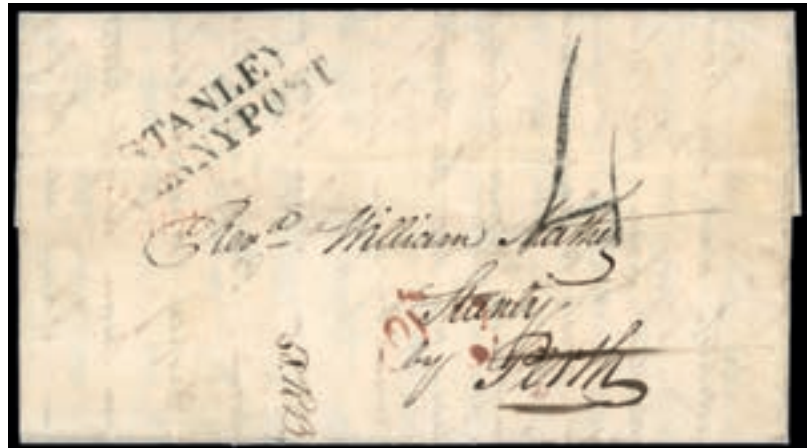 STANLEY
PENNY POST
Revd. William
Stanly
by Perth